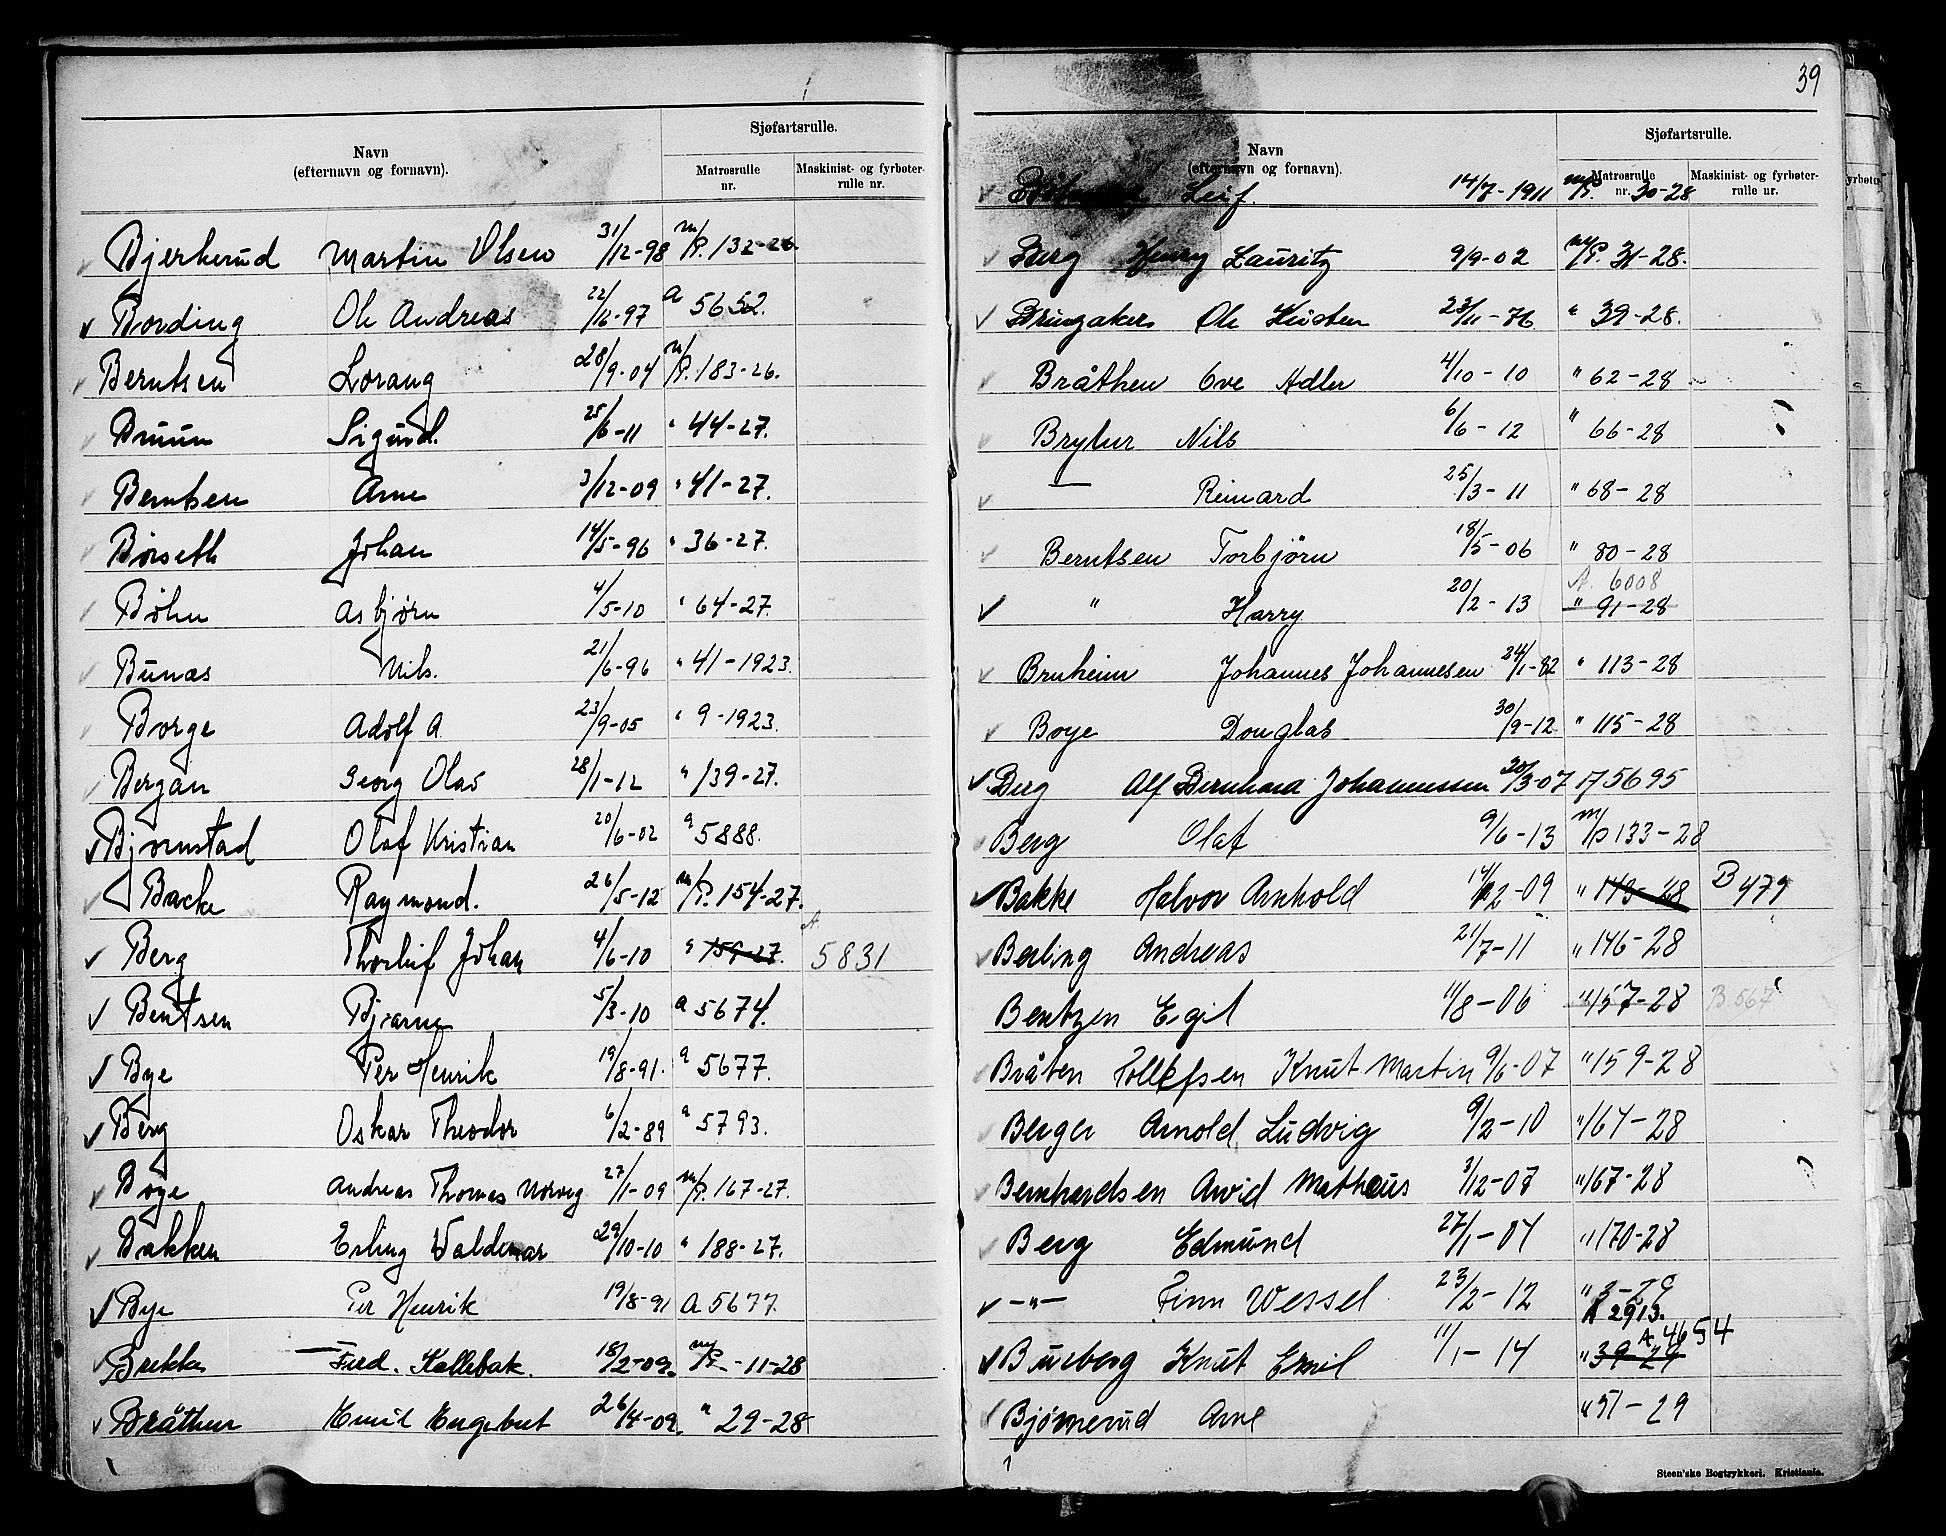 Navn
(efternavn og fornavn).
Sjøfartsrulle.
Matrosrulle nr.
Maskinist- og fyrbøter-rulle nr.
Bjerkerud Martin Olsen 31/12-98 m/P. 132-26.
Bording Ole Andreas 22/12-97 a 5652.
Berntsen Lorang 28/9-04 m/P. 183-26.
Bruun Sigurd. 25/6-11 " 44-27.
Berntsen Arne 3/12-09 " 41-27.
Børseth Johan 14/5-96 " 36-27.
Bøhn Asbjørn 4/5-10 " 64-27.
Bunæs Nils. 21/6-96 " 41-1923.
Borge Adolf A 23/9-05 " 9-1923.
Bergan Georg Olav 28/1-12 " 139-27.
Bjørnstad Olaf Kristian 20/6-02 a 5888.
Backe Raymond. 26/5-12 m/P. 154-27.
Berg Thorleif Johan 4/6-10 " 159-27. A 5831
Bentsen Bjarne 5/3-10 a 5674.
Bye Per Henrik 19/8-91. a 5677.
Berg Oskar Theodor 6/2-89 a 5793.
Boye Andreas Thomas Norvig 27/1-09 m/P. 167-27.
Bakken Erling Valdemar 29/10-10 " 188-27.
Bye Per Henrik 19/8-91 a 5677.
Brekke Ferd. Kallebak. 18/2-09. m/P. -11-28
Bråthen Emil Engebret 26/4-09. " 29-28
39
Navn
(efternavn og fornavn).
Sjøfartsrulle.
Matrosrulle nr.
Maskinist- og fyrbøter-rulle nr.
Leif. 14/7-1911 m/P. 30-28
Berg Henry Lauritz 9/9-02 m/P. 31-28.
Bringaker Ole Kristen 23/11-76 " 39-28.
Bråthen Ove Adler 4/10-10 " 62-28
Bryhn Nils 6/6-12 " 66-28
— Reinard 25/3-11 " 68-28
Berntsen Torbjørn 18/5-06 " 80-28
" Harry 20/2-13 A. 6008 " 91-28
Bruheim Johannes Johannesen 24/1-82 " 113-28
Boye Douglas 30/9-12 " 115-28
Berg Alf Bernhard Johannessen 20/3-07 5695
Berg Olaf 9/6-13 m/P 133-28
Bakke Halvor Arnhold 14/12-09 " 143-28 B 479
Berling Andreas 21/7-11 " 146-28
Bentzen Egil 11/8-06 " 157-28 B. 567
Bråten Tollefsen Knut Martin 9/6-07 " 159-28
Berger Arnold Ludvig 9/2-10 " 164-28
Bernhardsen Arvid Mathæus 3/12-07 " 167-28
Berg Edmund 27/1-04 " 170-28
—"— Finn Wessel 23/2-12 " 3-29 A 2913.
Burberg Knut Emil 11/1-14 " 39-29 A. 4654
Bjørnerud Arne " 51-29
Steen'ske Bogtrykkeri. Kristiania.